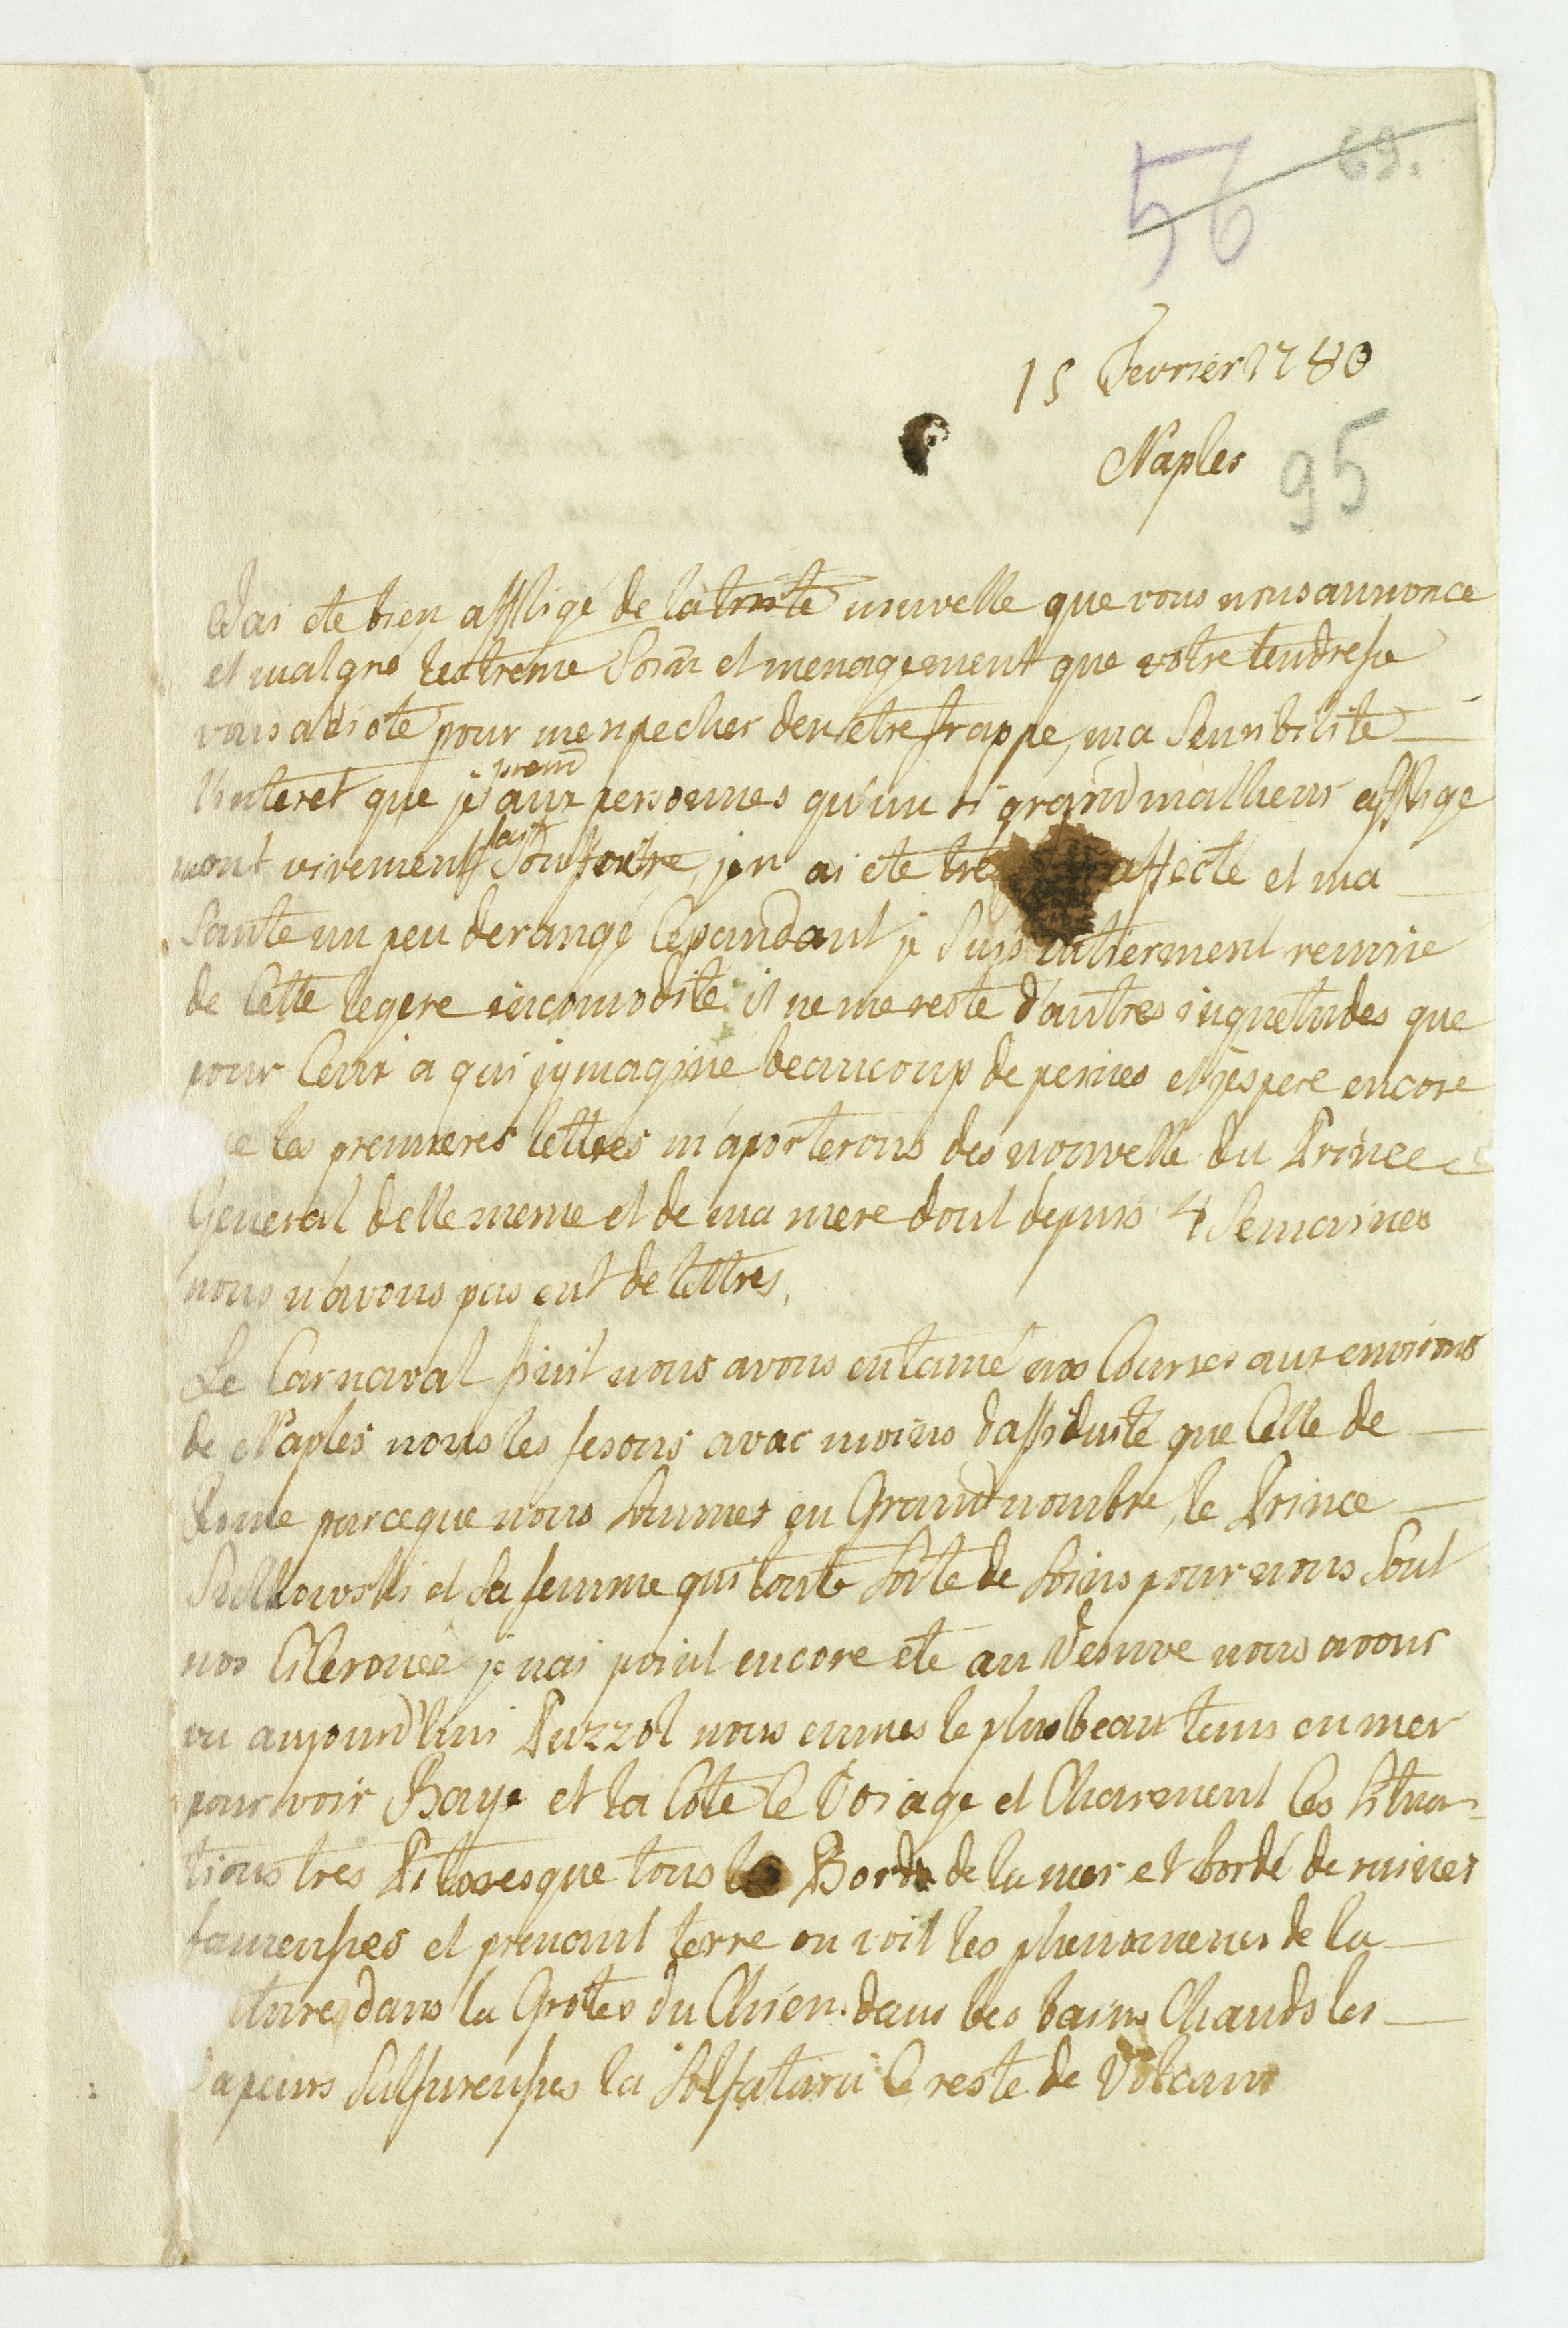 56 69.
15 Fevrier 1780
Naples
95
Jai ete bien affligé de la triste nouvelle que vous nous annonce
et malgré lextreme Soin et menagement que votre tendresse
vous a dicté pour menpecher den etre frappe, ma Sensibilite
l'interet que je prend aux personnes qu'un si grand malheur afflige
mont vivement fait Souffrire, jen ai ete tres affecté et ma
Sante un peu derangé Cepandant je Suis entierment remise
de Cette legere incomodite il ne me reste d'autres inquetudes que
pour Ceux a qui jymagine beaucoup de peines et j'espere encore
les premieres lettres m'aporterons des nouvelle du Prince
General delle meme et de ma mere dont depuis 4 Semaines
nous n'avons pas eut de lettres,
Le Carnaval finit nous avons entamé nos Courses aux environs
de Naples nous les fesons avac moins dassiduité que Celle de
Rome parceque nous Sommes en Grand nombre, le Prince
Sulkowski et Sa femme qui toute Sorte de Soins pour nous Sont
nos Cicerouée je nai point encore ete au Vesuve nous avons
vu aujourd'hui Puzzol nous eumes le plus beau tems en mer
pour voir Baye et la Côte le Voiage et Charment les Situa-
tions tres Pitoresque tous le Bords de la mer et bordé de ruines
fameuses et prenant terre on voit les phenomenes de la
dans la Grotes du Chien. dans les bains Chauds les
vapeurs Sulfureuses la Solfatara le reste de Volcans